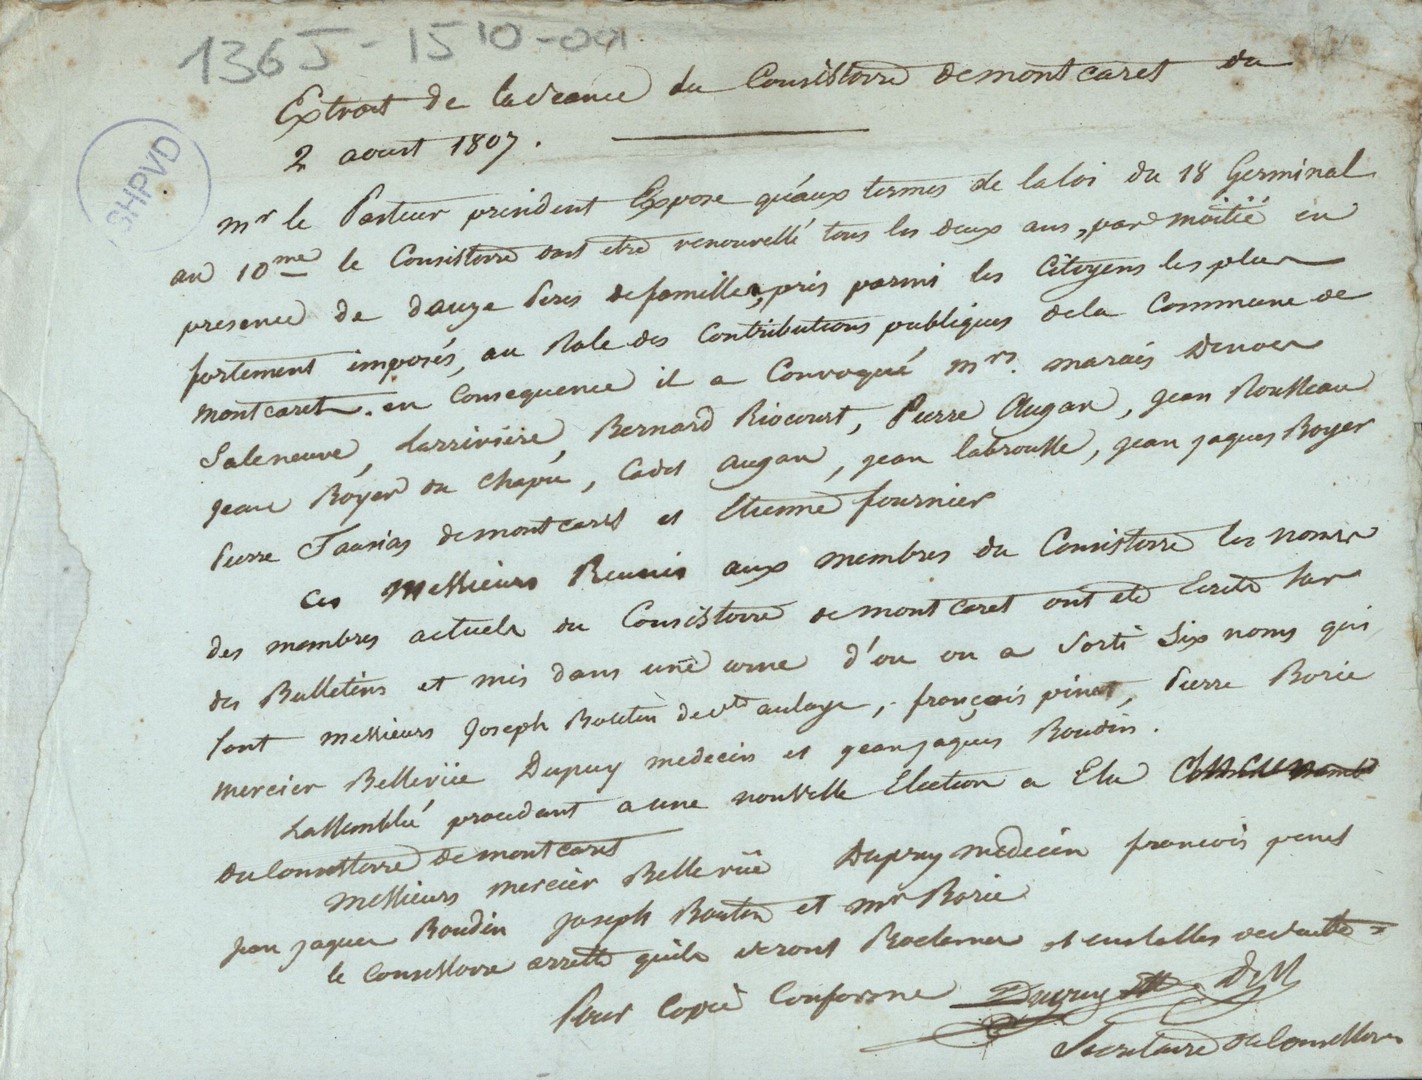 1365-1510-001
SHPVD
Extrait de la séance du Consistoire de montcaret du
2 aoust 1807.
mr le Pasteur president Expose qu'aux termes de la loi du 18 Germinal
an 10me le Consistoire doit etre renouvellé tous les deux ans, par moitié en
presence de douze Peres de familles, pris parmi les Citoyens les plus
fortement imposés, au Role des Contributions publiques de la Commune de
montcaret. en Consequence il a Convoqué mrs. marais
Saleneuve, Larriviere, Bernard Riocourt, Pierre Augan, jean Rousseau
jean Royer du Chapu, Cadet augan, jean labrousse, jean jaques Royer
Pierre Tausias de montcaret et Etienne fournier
ces Messieurs Reunis aux membres du Consistoire les noms
des membres actuels du Consistoire de montcaret ont eté Ecrits sur
des Bulletins et mis dans une urne d'ou on a sorti Six noms qui
sont messieurs Joseph Boutin de st aulaye, françois pinet, Pierre Borie
mercier Bellevüe Dupuy medecin et jean jaques Boudin.
Lassemblée procedant a une nouvelle Election a Elu
du Consistoire de montcaret
messieurs mercier Bellevüe Dupuy medecin francois penet
jean jaques Boudin joseph Boutin et mr Borie
le Consistoire arrette quils seront Proclamer et enstalles de suitte
Pour Copie Conforme Dupuy
Secretaire du Consistoire